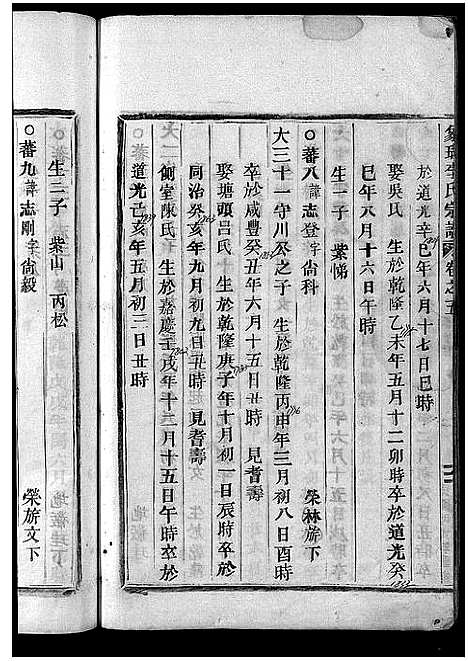 李氏宗譜 卷之五
於道光辛巳年六月十七日巳時
娶吳氏 生於乾隆乙未年五月十二卯時卒於道光癸
巳年八月十六日午時
生一子 紫悌
○蕃八 諱志登 字尙科 榮林旂下
大三十一守川公之子 生於乾隆丙申年三月初八日酉時
卒於咸豐癸丑年六月十五日丑時 見耆壽
娶塘頭呂氏 生於乾隆庚子年十月初一日辰時卒於
同治癸亥年九月初九日丑時 見耆壽
側室陳氏 生於嘉慶壬戌年十二月十五日午時卒於
道光己亥年五月初二日丑時
生二子 紫山 丙松
○蕃九 諱志剛 字尙毅 榮旂文下